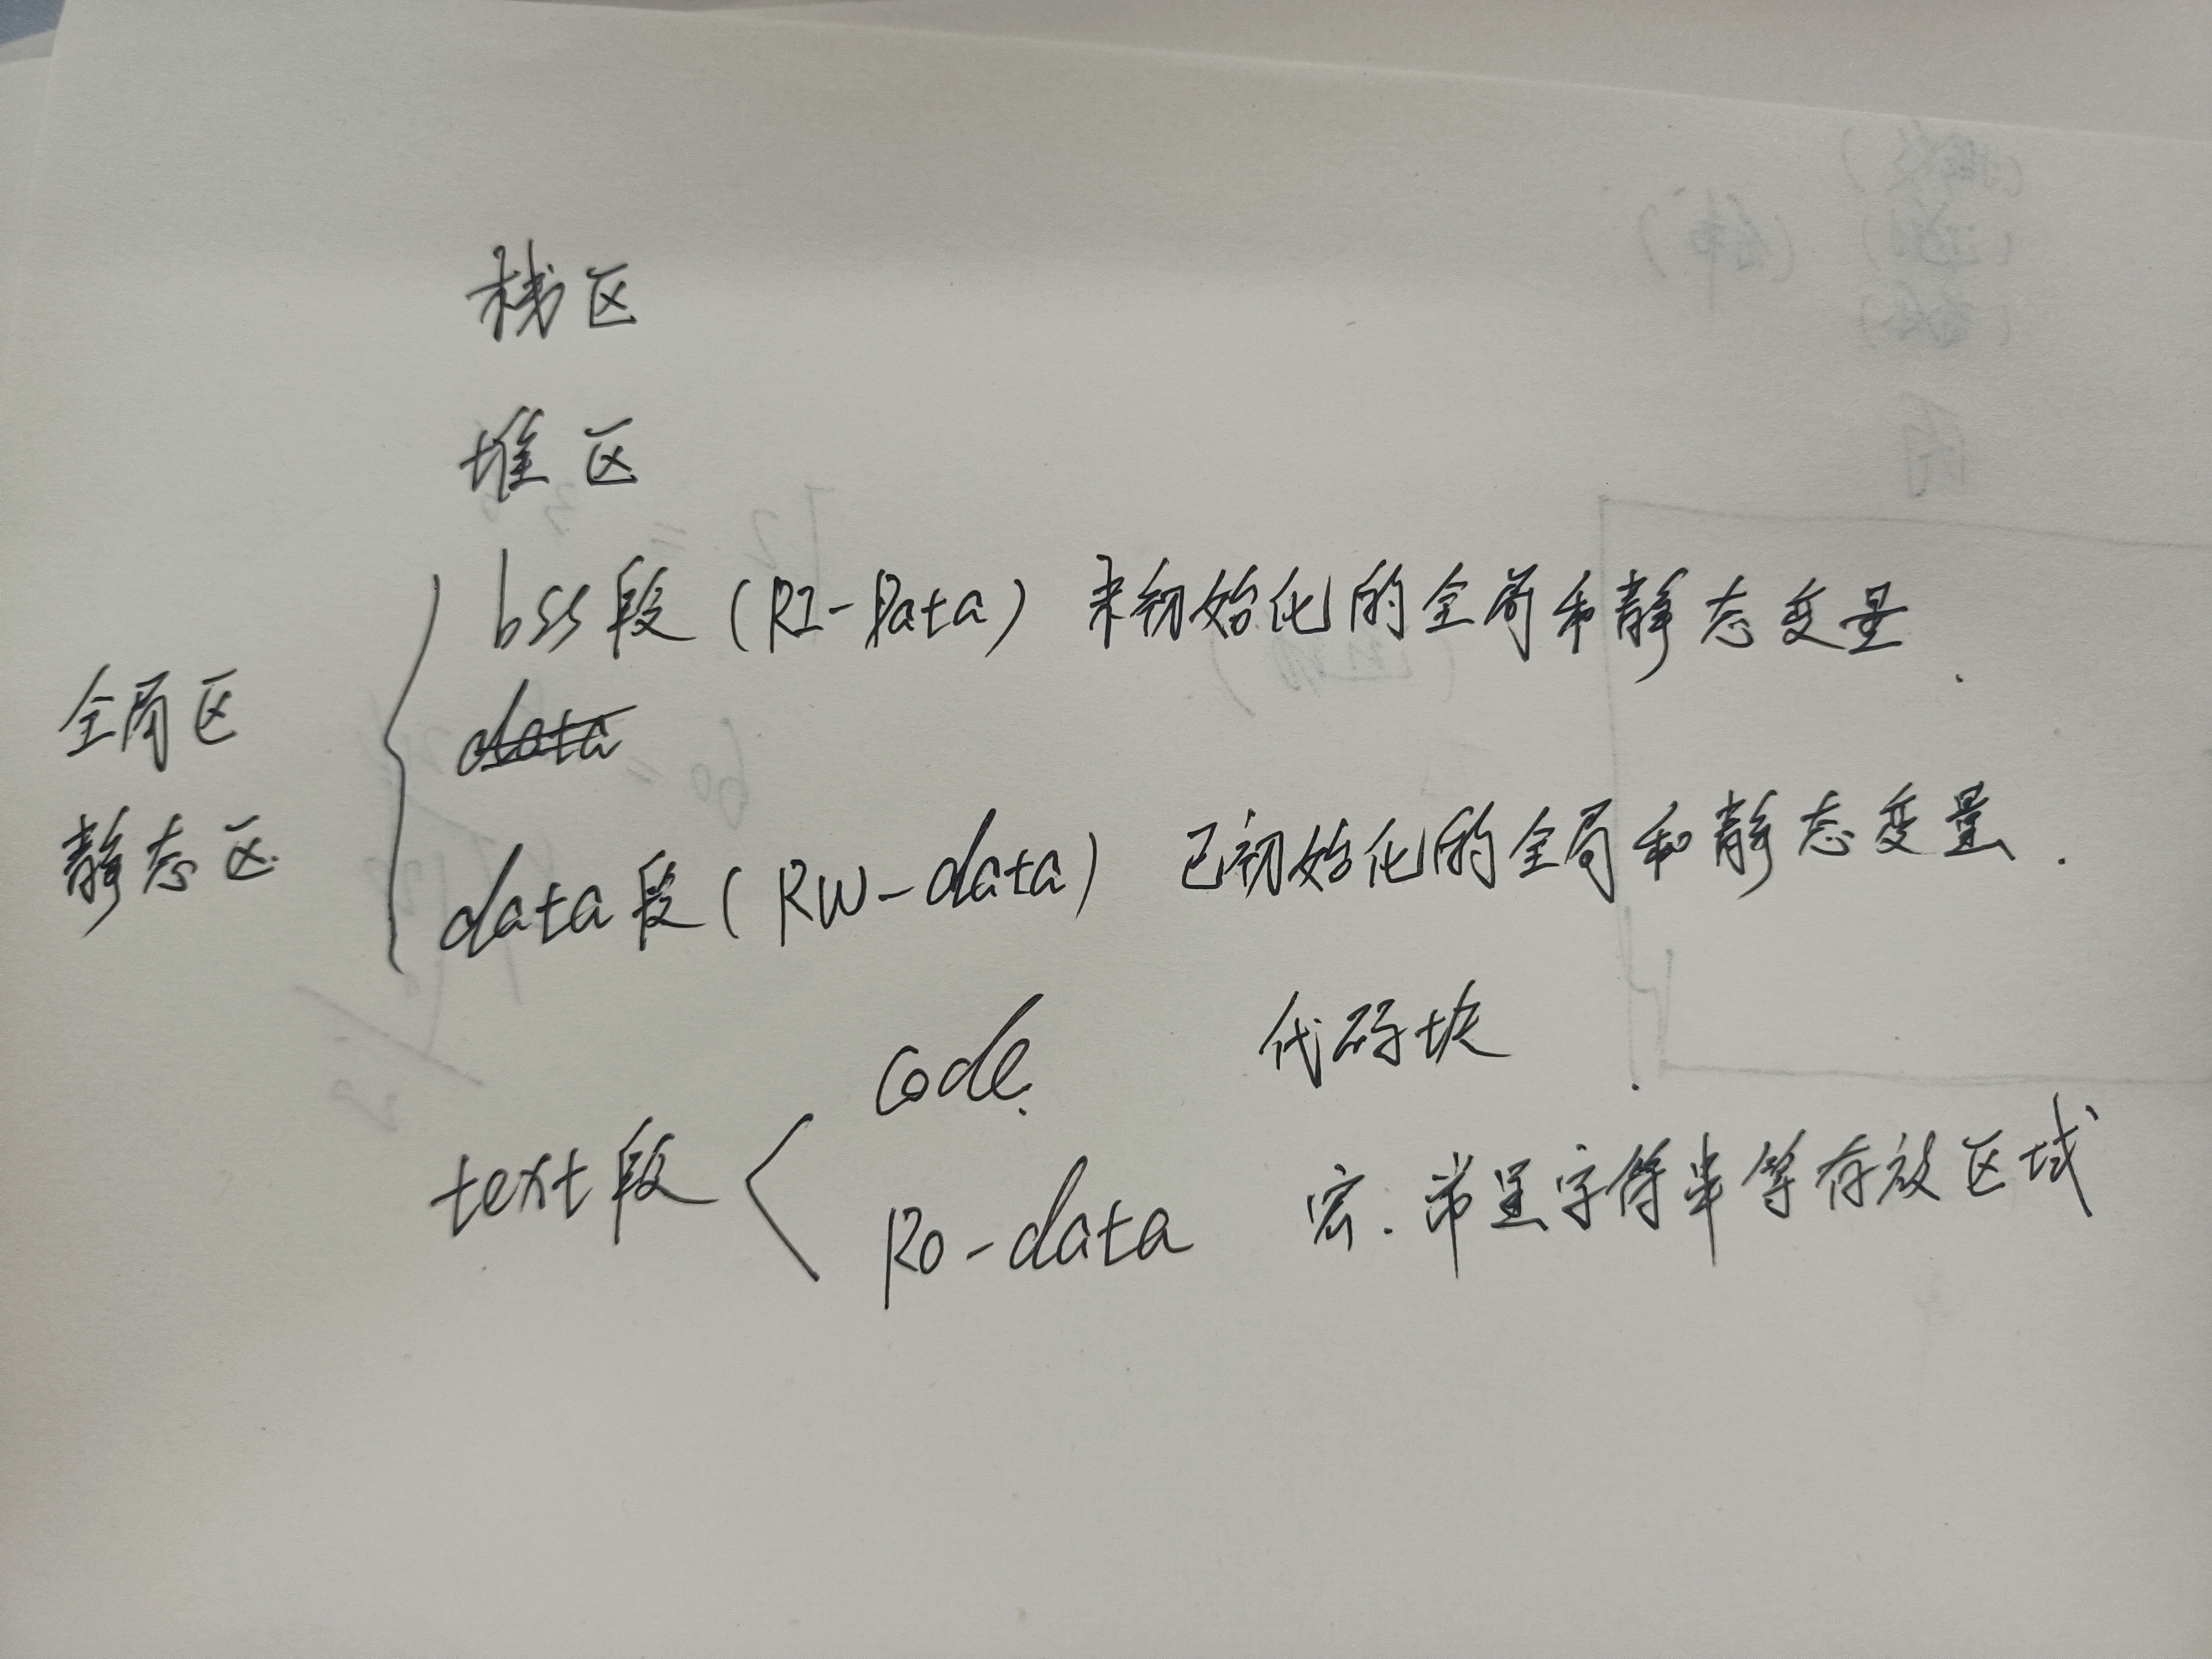 栈区
堆区
全局区
静态区
bss段 (RI-Data) 未初始化的全局和静态变量.
data
data段 (RW-data) 已初始化的全局和静态变量.
text段
code. 代码块.
Ro-data 宏.常量字符串等存放区域